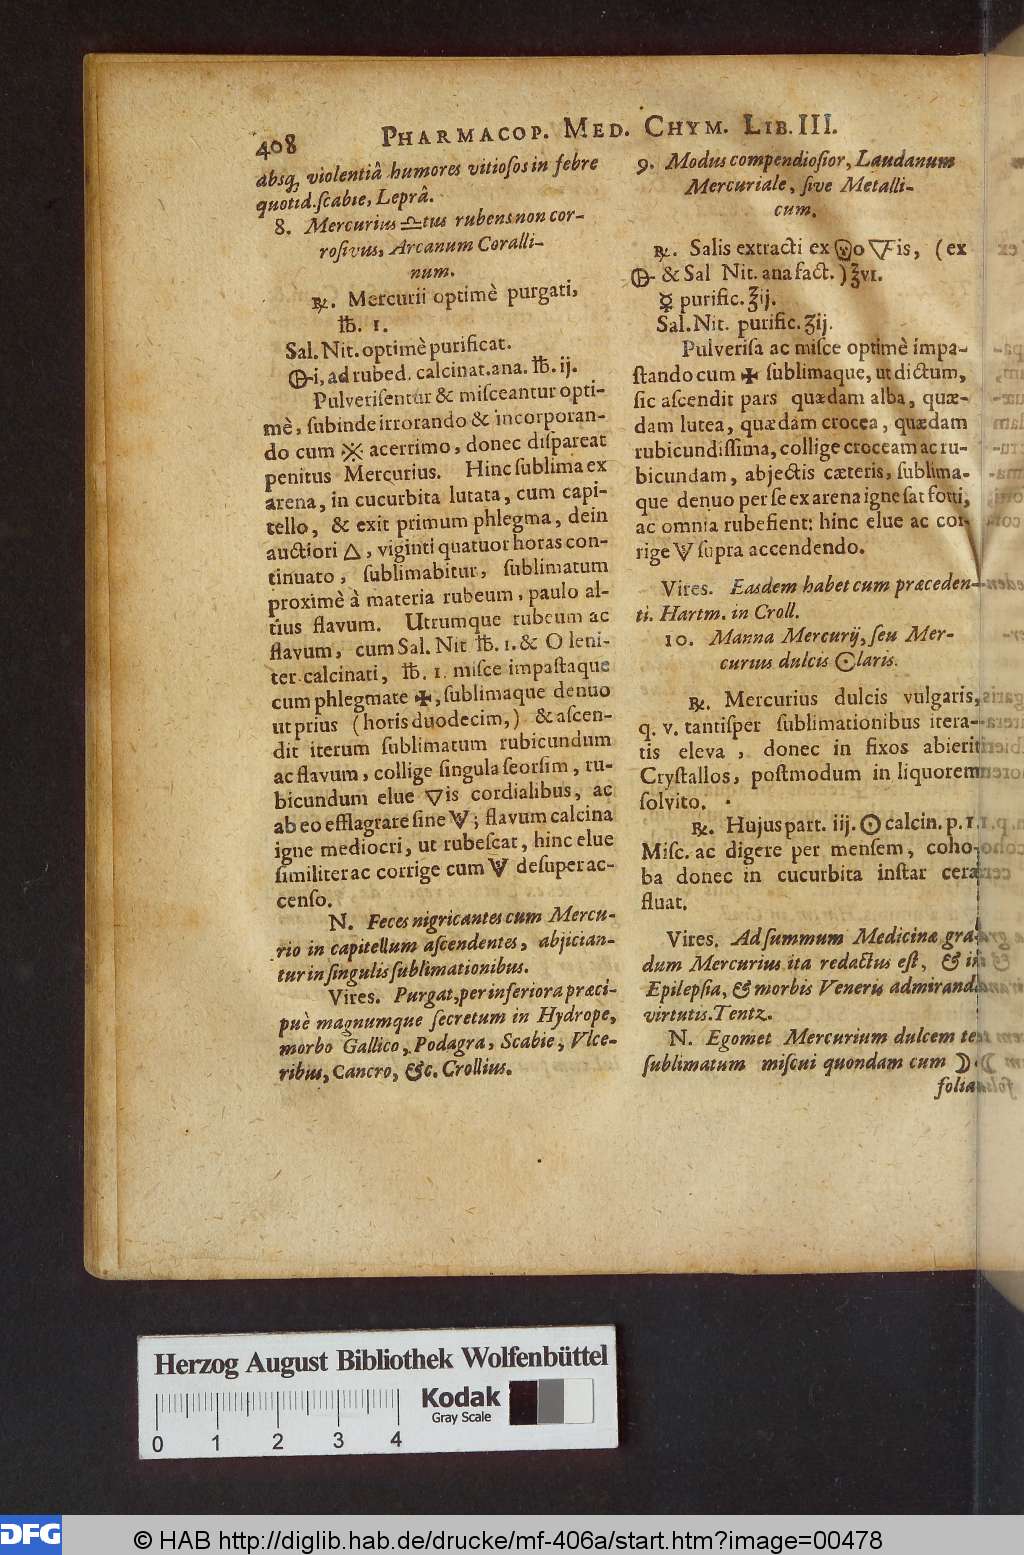 408 PHARMACOP. MED. CHYM. LIB. III.
absq; violentiâ humores vitiosos in febre
quotid. scabie, Leprâ.
8. Mercurius ♎tus rubens non cor-
rosivus, Arcanum Coralli-
num.
℞. Mercurii optimè purgati,
℔. 1.
Sal. Nit. optimè purificat.
i, ad rubed. calcinat. ana. ℔. ij.
Pulverisentur & misceantur opti-
mè, subinde irrorando & incorporan-
do cum acerrimo, donec dispareat
penitus Mercurius. Hinc sublima ex
arena, in cucurbita lutata, cum capi-
tello, & exit primum phlegma, dein
auctiori △, viginti quatuor horas con-
tinuato, sublimabitur, sublimatum
proximè à materia rubeum, paulo al-
tius flavum. Utrumque rubeum ac
flavum, cum Sal. Nit ℔. 1. & O leni-
ter calcinati, ℔. 1. misce impastaque
cum phlegmate ✠, sublimaque denuo
ut prius (horis duodecim,) & ascen-
dit iterum sublimatum rubicundum
ac flavum, collige singula seorsim, ru-
bicundum elue ▽is cordialibus, ac
ab eo efflagrare sine ; flavum calcina
igne mediocri, ut rubescat, hinc elue
similiter ac corrige cum desuper ac-
censo.
N. Feces nigricantes cum Mercu-
rio in capitellum ascendentes, abjician-
tur in singulis sublimationibus.
Vires. Purgat, per inferiora præci-
puè magnumque secretum in Hydrope,
morbo Gallico, Podagra, Scabie, Vlce-
ribus, Cancro, &c. Crollius.
9. Modus compendiosior, Laudanum
Mercuriale, sive Metalli-
cum.
℞. Salis extracti ex o is, (ex
& Sal Nit. ana fact.) ʒvi.
☿ purific. ʒij.
Sal. Nit. purific. ʒij.
Pulverisa ac misce optimè impa-
stando cum ✠ sublimaque, ut dictum,
sic ascendit pars quædam alba, quæ-
dam lutea, quædam crocea, quædam
rubicundissima, collige croceam ac ru-
bicundam, abjectis cæteris, sublima-
que denuo per se ex arena igne sat forti,
ac omnia rubefient: hinc elue ac cor-
rige supra accendendo.
Vires. Easdem habet cum præceden-
ti. Hartm. in Croll.
10. Manna Mercurij, seu Mer-
curius dulcis ☉laris.
℞. Mercurius dulcis vulgaris,
q. v. tantisper sublimationibus itera-
tis eleva, donec in fixos abierit
Crystallos, postmodum in liquorem
solvito.
℞. Hujus part. iij. ☉ calcin. p. 1.
Misc. ac digere per mensem, coho-
ba donec in cucurbita instar ceræ
fluat.
Vires. Ad summum Medicinæ gra-
dum Mercurius ita redactus est, & in
Epilepsia, & morbis Veneris admirand.
virtutis. Tentz.
N. Egomet Mercurium dulcem ter
sublimatum miscui quondam cum ☽.
folia
Herzog August Bibliothek Wolfenbüttel
Kodak
Gray Scale
0 1 2 3 4
DFG
© HAB http://diglib.hab.de/drucke/mf-406a/start.htm?image=00478